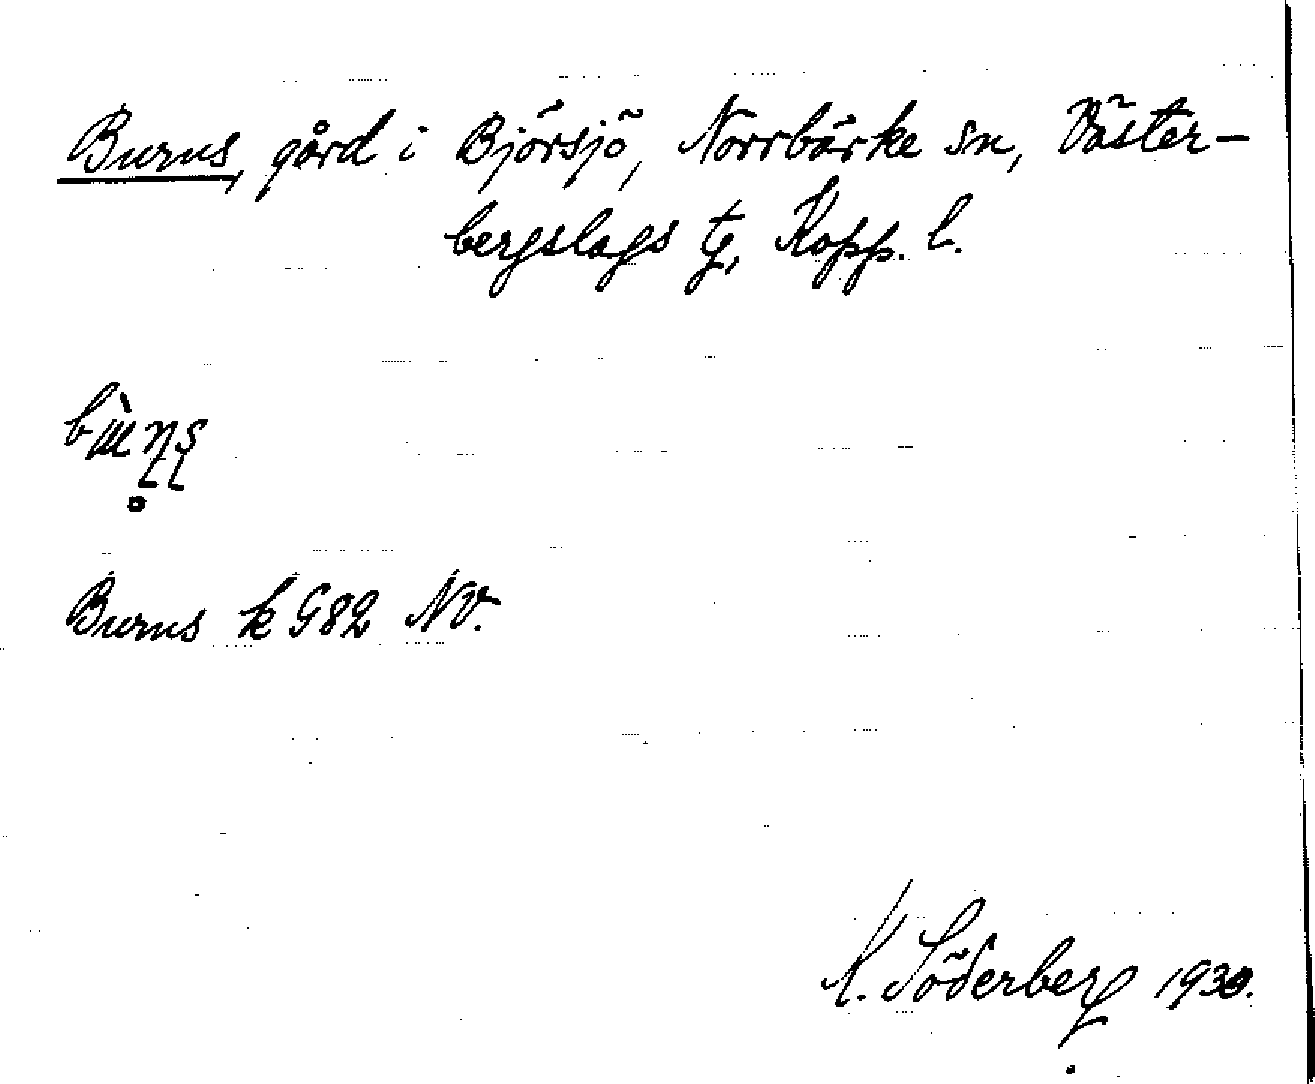 Burns, gård i Björsjö, Norrbärke sn, Väster-
bergslags tg, Kopp. l.
Burns k G82 NV.
K. Söderberg 1930.